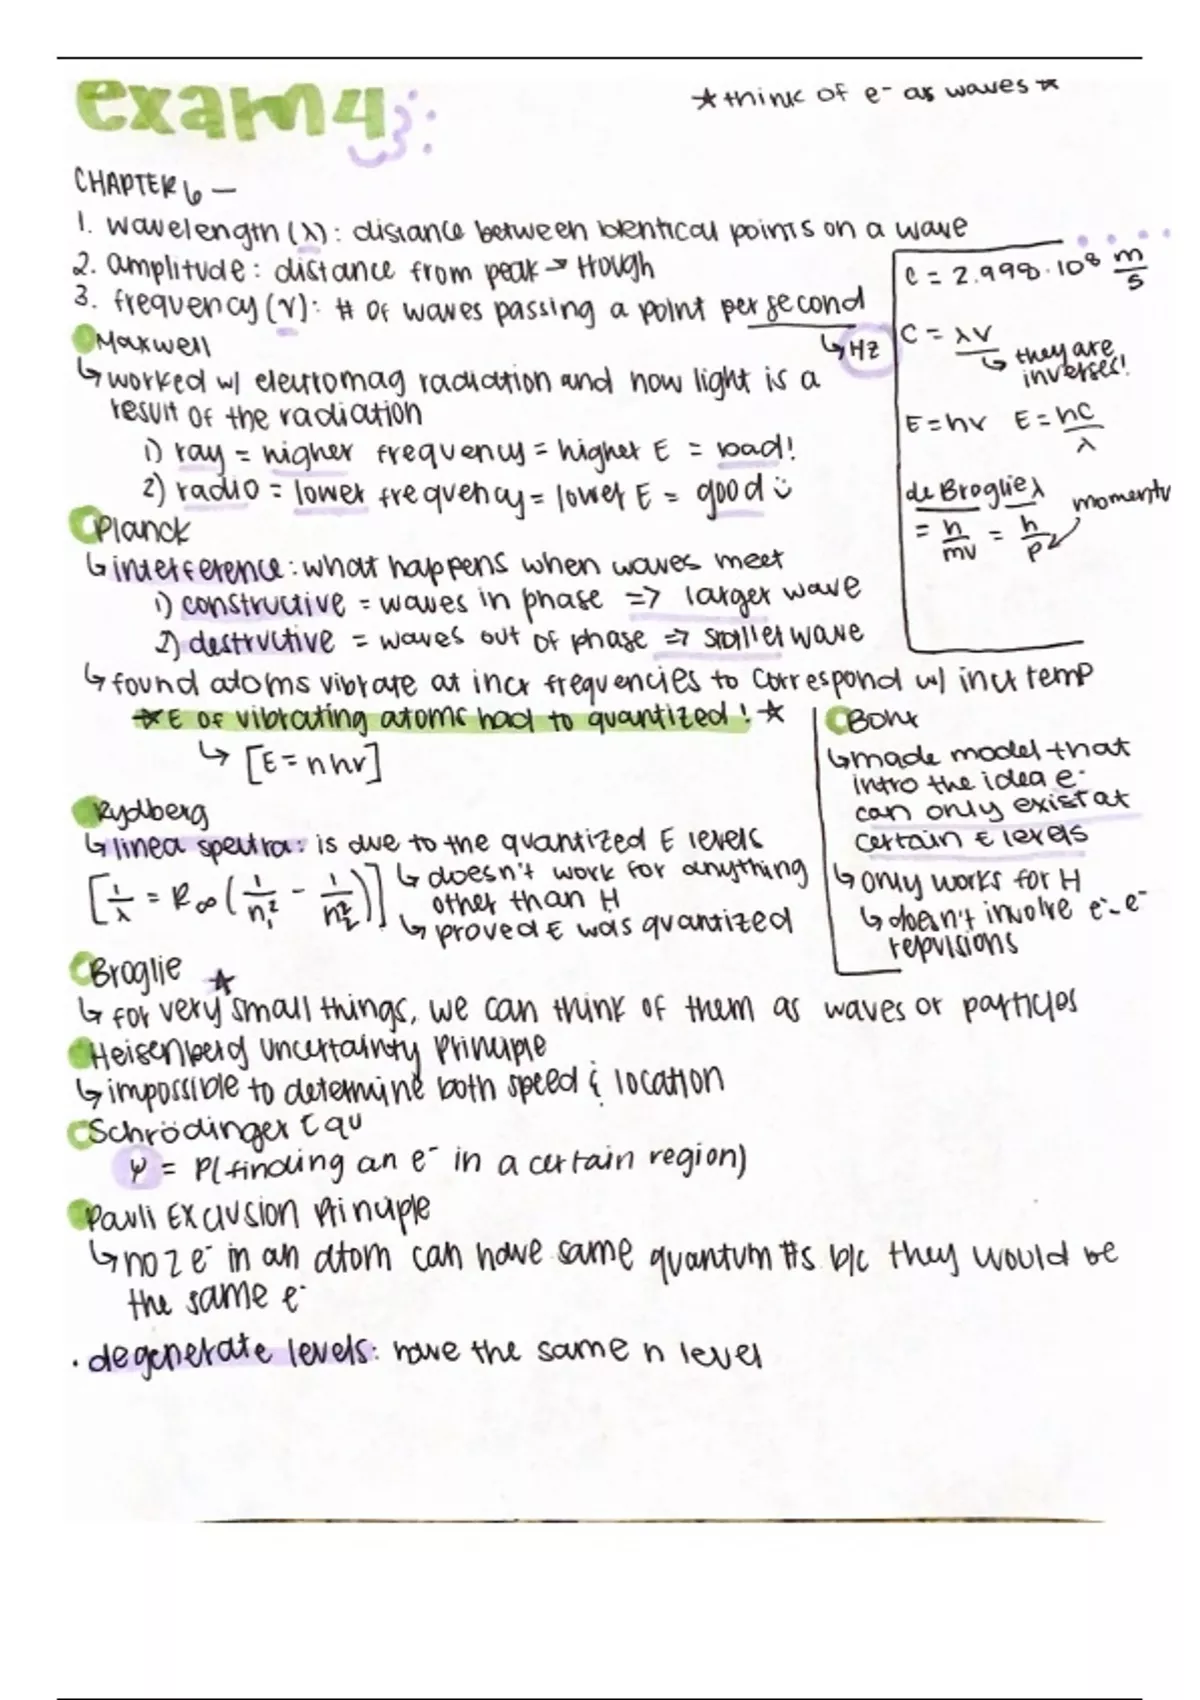 exam 4
★think of e⁻ as waves★
CHAPTER 6 —
1. wavelength (λ): distance between identical points on a wave
2. amplitude: distance from peak → trough
3. frequency (ν): # of waves passing a point per second
↳ Hz
C = 2.998·10⁸ m/s
C = λν
↳ they are
inverses!
E = hν E = hc/λ
de Broglie λ
= h/mv = h/p
momentu
Maxwell
↳ worked w/ electromag radiation and how light is a
result of the radiation
1) ray = higher frequency = higher E = bad!
2) radio = lower frequency = lower E = good
Planck
↳ interference: what happens when waves meet
1) constructive = waves in phase => larger wave
2) destructive = waves out of phase => smaller wave
↳ found atoms vibrate at incr frequencies to correspond w/ incr temp
★E of vibrating atoms had to quantized!★
↳ [E = nhν]
Bohr
↳ made model that
intro the idea e⁻
can only exist at
certain E levels
↳ only works for H
↳ doesn't involve e⁻-e⁻
repulsions
Rydberg
↳ linea spectra: is due to the quantized E levels
[1/λ = R∞(1/n₁² - 1/n₂²)]
↳ doesn't work for anything
other than H
↳ proved E was quantized
Broglie ★
↳ for very small things, we can think of them as waves or particles
Heisenberg Uncertainty Principle
↳ impossible to determine both speed & location
Schrödinger Equ
ψ = P(finding an e⁻ in a certain region)
Pauli Exclusion Principle
↳ no 2 e⁻ in an atom can have same quantum #s b/c they would be
the same e⁻
· degenerate levels: have the same n level